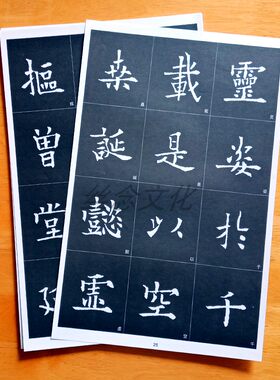 靈姿於千
載是以空
桒誕懿虛
樞曾堂
25